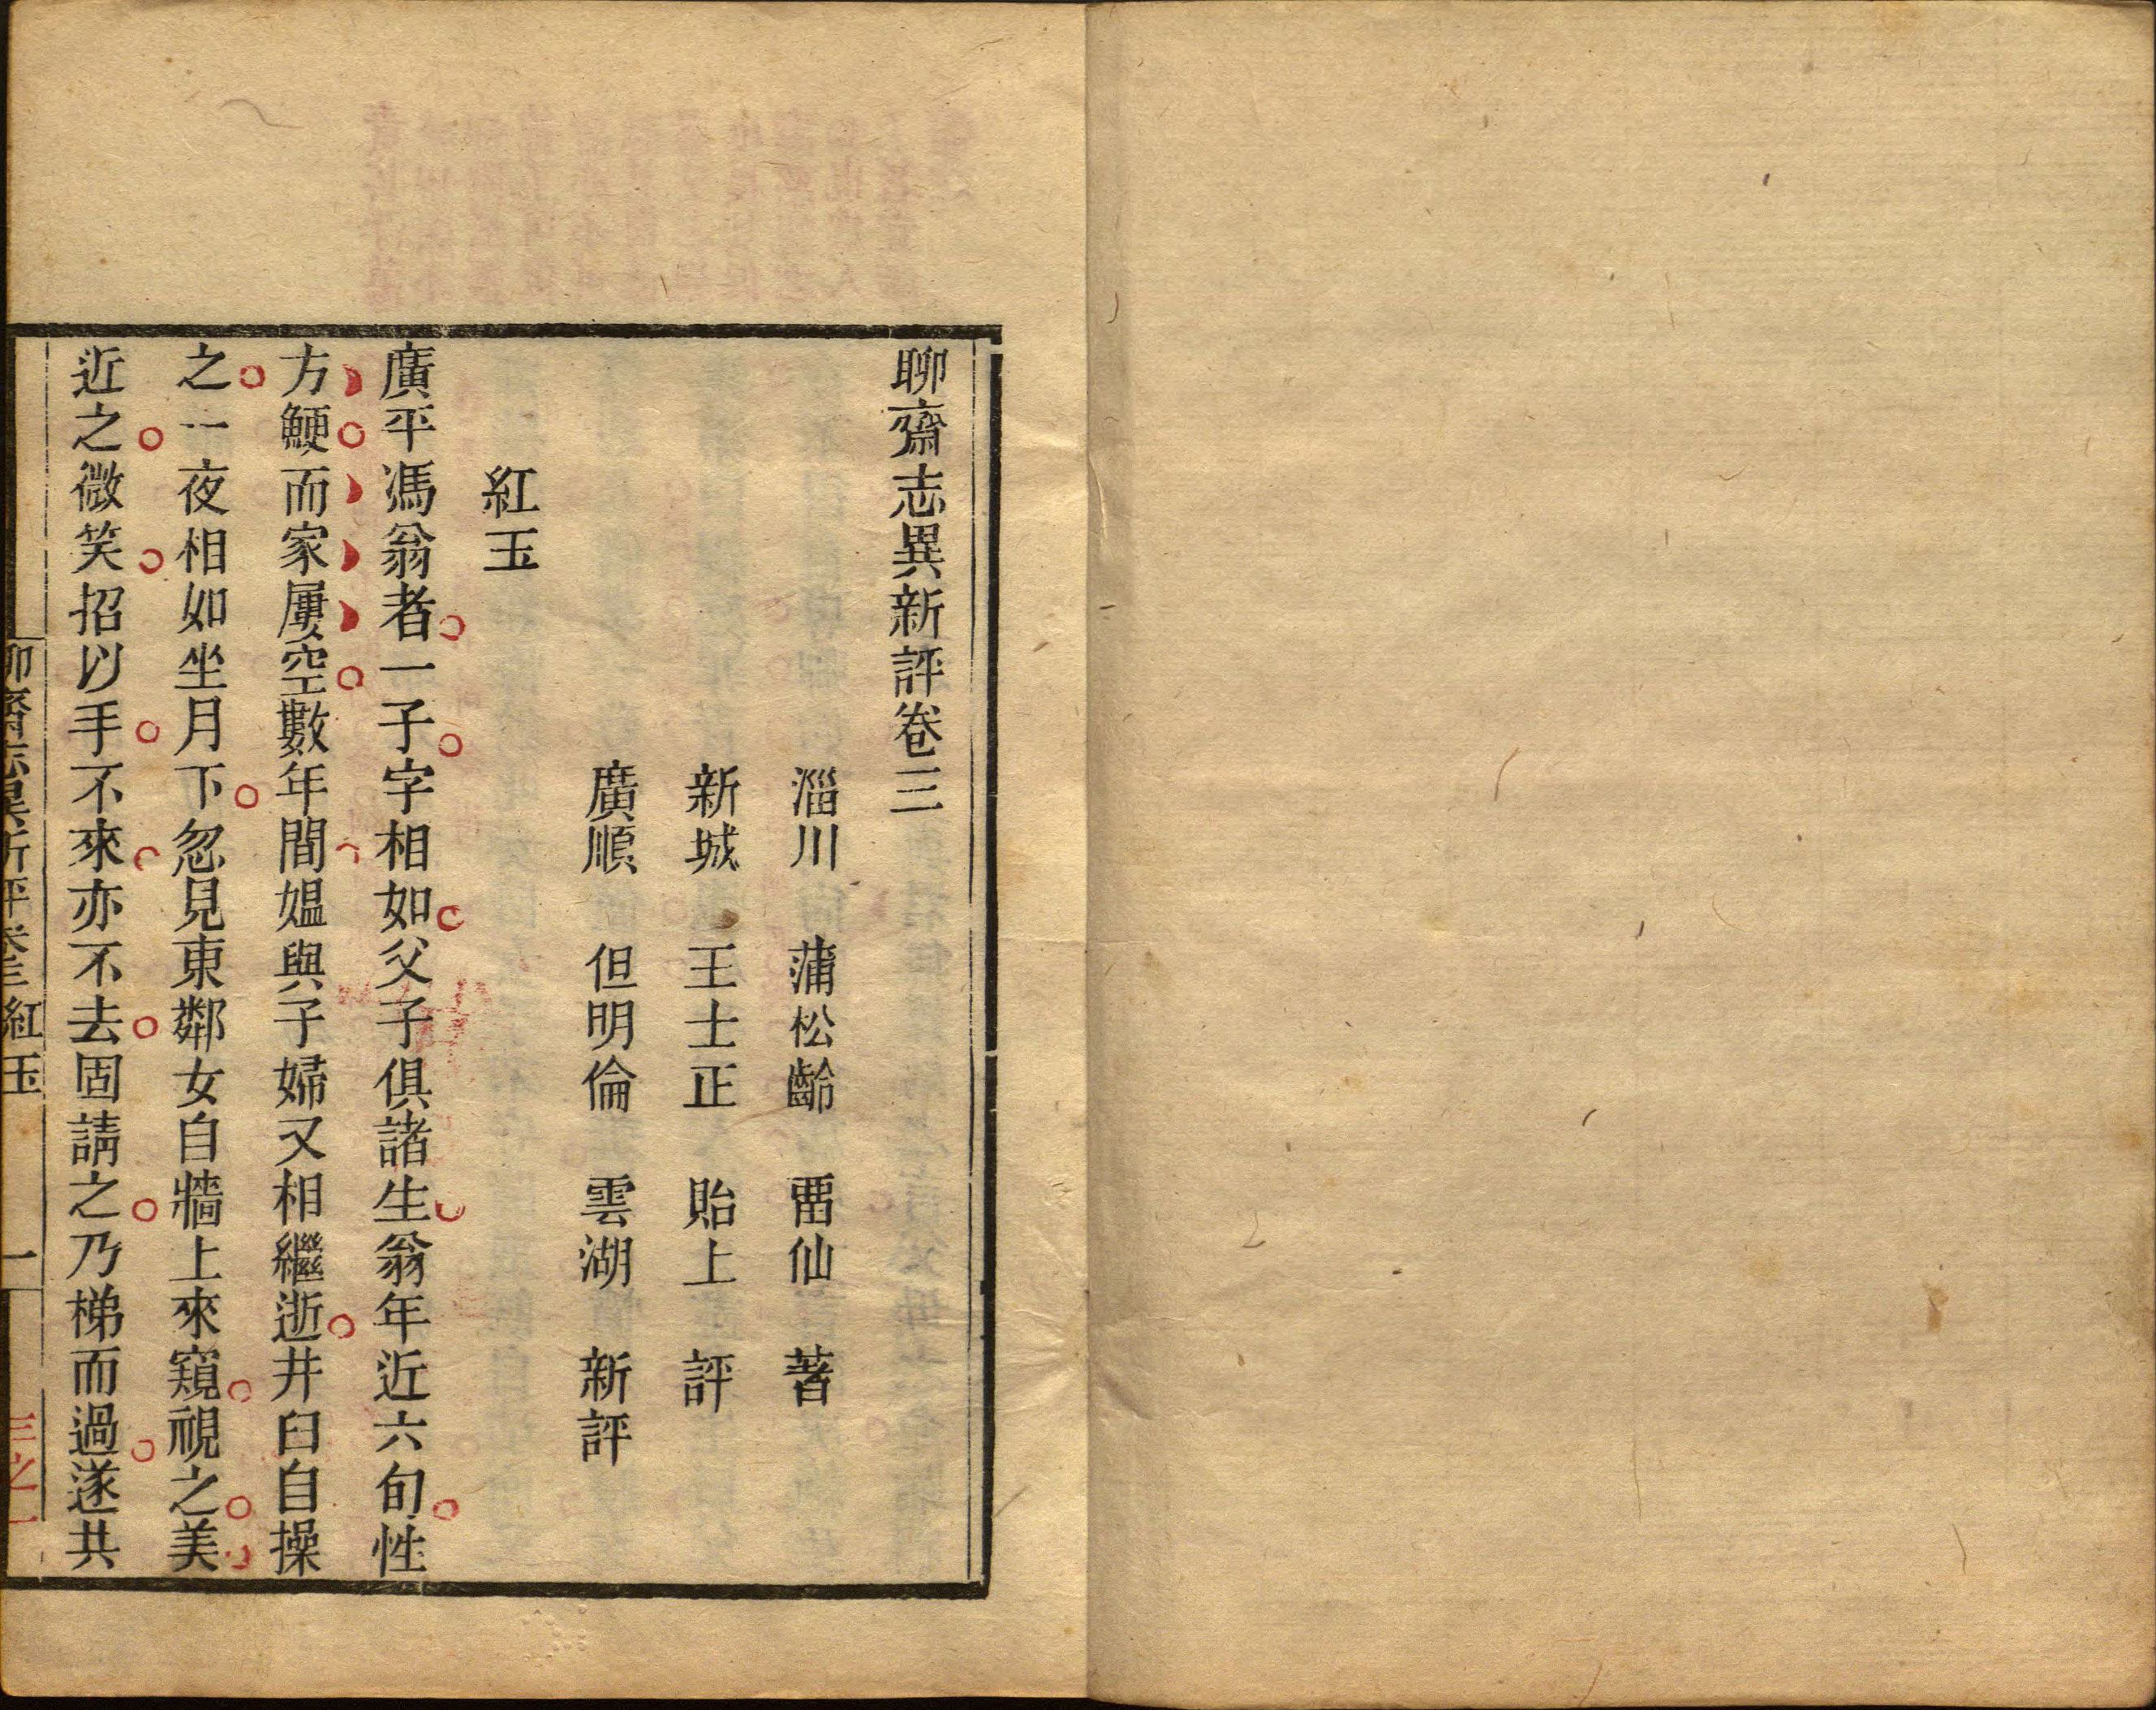 聊齋志異新評卷三
淄川 蒲松齡 畱仙 著
新城 王士正 貽上 評
廣順 但明倫 雲湖 新評
紅玉
廣平馮翁者一子字相如父子俱諸生翁年近六旬性
方鯁而家屢空數年間媼與子婦又相繼逝井臼自操
之一夜相如坐月下忽見東鄰女自牆上來窺視之美
近之微笑招以手不來亦不去固請之乃梯而過遂共
聊齋志異新評卷三 紅玉 一
三之一